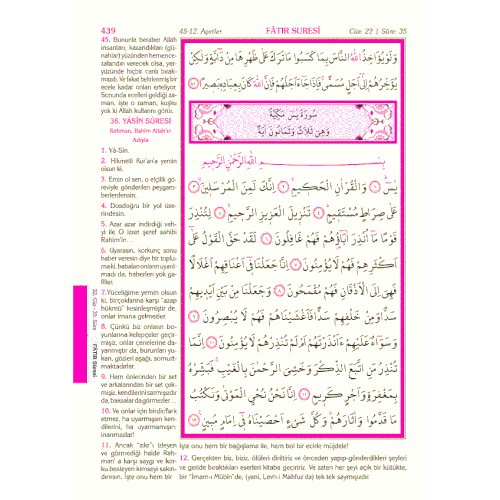 439
45-12. Ayetler
FÂTIR SURESİ
Cüz: 22 | Sûre: 35
45. Bununla beraber Allah
insanları, kazandıkları (gü-
nahlar) yüzünden hemence-
zalandırıverecek olsa, yer-
yüzünde hiçbir canlı bırak-
mazdı. Ve fakat belirlenmiş bir
ecele kadar onları erteliyor.
Sonunda ecelleri geldiği za-
man, işte o zaman, kuşku
yok ki Allah kullarını görür.
36. YÂSÎN SÛRESİ
Rahman, Rahîm Allah'ın
Adıyla
1. Yâ-Sîn.
2. Hikmetli Kur'an'a yemin
olsun ki,
3. Emin ol sen, o elçilik gö-
reviyle gönderilen peygam-
berlerdensin;
4. Dosdoğru bir yol üze-
rindesin.
5. Azar azar indirdiği vah-
yi ile O Izzet şeref sahibi
Rahîm'in...
6. Uyarasın, korkunç sonu
haber veresin diye bir toplu-
ma ki, babaları onların uyarıl-
madı da, haberleri yok ga-
filler.
7. Yüceliğime yemin olsun
ki, birçoklarına karşı "azap
hükmü" kesinleşmiştir de,
onlar imana gelmezler.
8. Çünkü biz onların bo-
yunlarına kelepçeler geçir-
mişiz, onlar çenelerine da-
yanmıştır da, burunları yu-
karı, gözleri aşağı, somurt-
maktadırlar.
9. Hem önlerinden bir set
ve arkalarından bir set çek-
mişiz, kendilerini sarmışızdır
da, baksalar da görmezler...
10. Ve onlar için birdir, fark
etmez, ha uyarmışsın ken-
dilerini, ha uyarmamışsın;
inanmazlar!
11. Ancak "zikr"i izleyen
ve görmediği halde Rah-
man' a karşı saygı ve kor-
ku besleyen kimseyi sakın-
dırırsın.
İşte onu hem bir bağışlama ile, hem bol bir ecirle müjdele!
12. Gerçekten biz, biziz, ölüleri diriltiriz ve önceden yapıp-gönderdikleri şeyleri
ve geride bıraktıkları eserleri kitaba geçiririz. Ve zaten her şeyi açık bir kütükte,
bir "Imam-ı Mübin"de, (yani, Levh-i Mahfuz'da) tek tek saymışızdır.
22. Cüz - 35. Sûre
FÂTIR Sûresi
وَلَوْ يُؤَاخِذُ اللّٰهُ النَّاسَ بِمَا كَسَبُوا مَا تَرَكَ عَلٰى ظَهْرِهَا مِنْ دَٓابَّةٍ وَلٰكِنْ
يُؤَخِّرُهُمْ اِلٰٓى اَجَلٍ مُسَمًّىۚ فَاِذَا جَٓاءَ اَجَلُهُمْ فَاِنَّ اللّٰهَ كَانَ بِعِبَادِه۪ بَص۪يرًا ﴿٤٥﴾
سُورَةُ يٰسٓ مَكِّيَّةٌ
وَهِيَ ثَلَاثٌ وَثَمَانُونَ اٰيَةً
بِسْمِ اللّٰهِ الرَّحْمٰنِ الرَّح۪يمِ
يٰسٓ ﴿١﴾ وَالْقُرْاٰنِ الْحَك۪يمِ ﴿٢﴾ اِنَّكَ لَمِنَ الْمُرْسَل۪ينَ ﴿٣﴾
عَلٰى صِرَاطٍ مُسْتَق۪يمٍ ﴿٤﴾ تَنْز۪يلَ الْعَز۪يزِ الرَّح۪يمِ ﴿٥﴾ لِتُنْذِرَ
قَوْمًا مَٓا اُنْذِرَ اٰبَٓاؤُهُمْ فَهُمْ غَافِلُونَ ﴿٦﴾ لَقَدْ حَقَّ الْقَوْلُ عَلٰٓى
اَكْثَرِهِمْ فَهُمْ لَا يُؤْمِنُونَ ﴿٧﴾ اِنَّا جَعَلْنَا ف۪ٓي اَعْنَاقِهِمْ اَغْلَالًا
فَهِيَ اِلَى الْاَذْقَانِ فَهُمْ مُقْمَحُونَ ﴿٨﴾ وَجَعَلْنَا مِنْ بَيْنِ اَيْد۪يهِمْ
سَدًّا وَمِنْ خَلْفِهِمْ سَدًّا فَاَغْشَيْنَاهُمْ فَهُمْ لَا يُبْصِرُونَ ﴿٩﴾
وَسَوَٓاءٌ عَلَيْهِمْ ءَاَنْذَرْتَهُمْ اَمْ لَمْ تُنْذِرْهُمْ لَا يُؤْمِنُونَ ﴿١٠﴾ اِنَّمَا
تُنْذِرُ مَنِ اتَّبَعَ الذِّكْرَ وَخَشِيَ الرَّحْمٰنَ بِالْغَيْبِۚ فَبَشِّرْهُ
بِمَغْفِرَةٍ وَاَجْرٍ كَر۪يمٍ ﴿١١﴾ اِنَّا نَحْنُ نُحْيِ الْمَوْتٰى وَنَكْتُبُ
مَا قَدَّمُوا وَاٰثَارَهُمْۜ وَكُلَّ شَيْءٍ اَحْصَيْنَاهُ ف۪ٓي اِمَامٍ مُب۪ينٍ ﴿١٢﴾